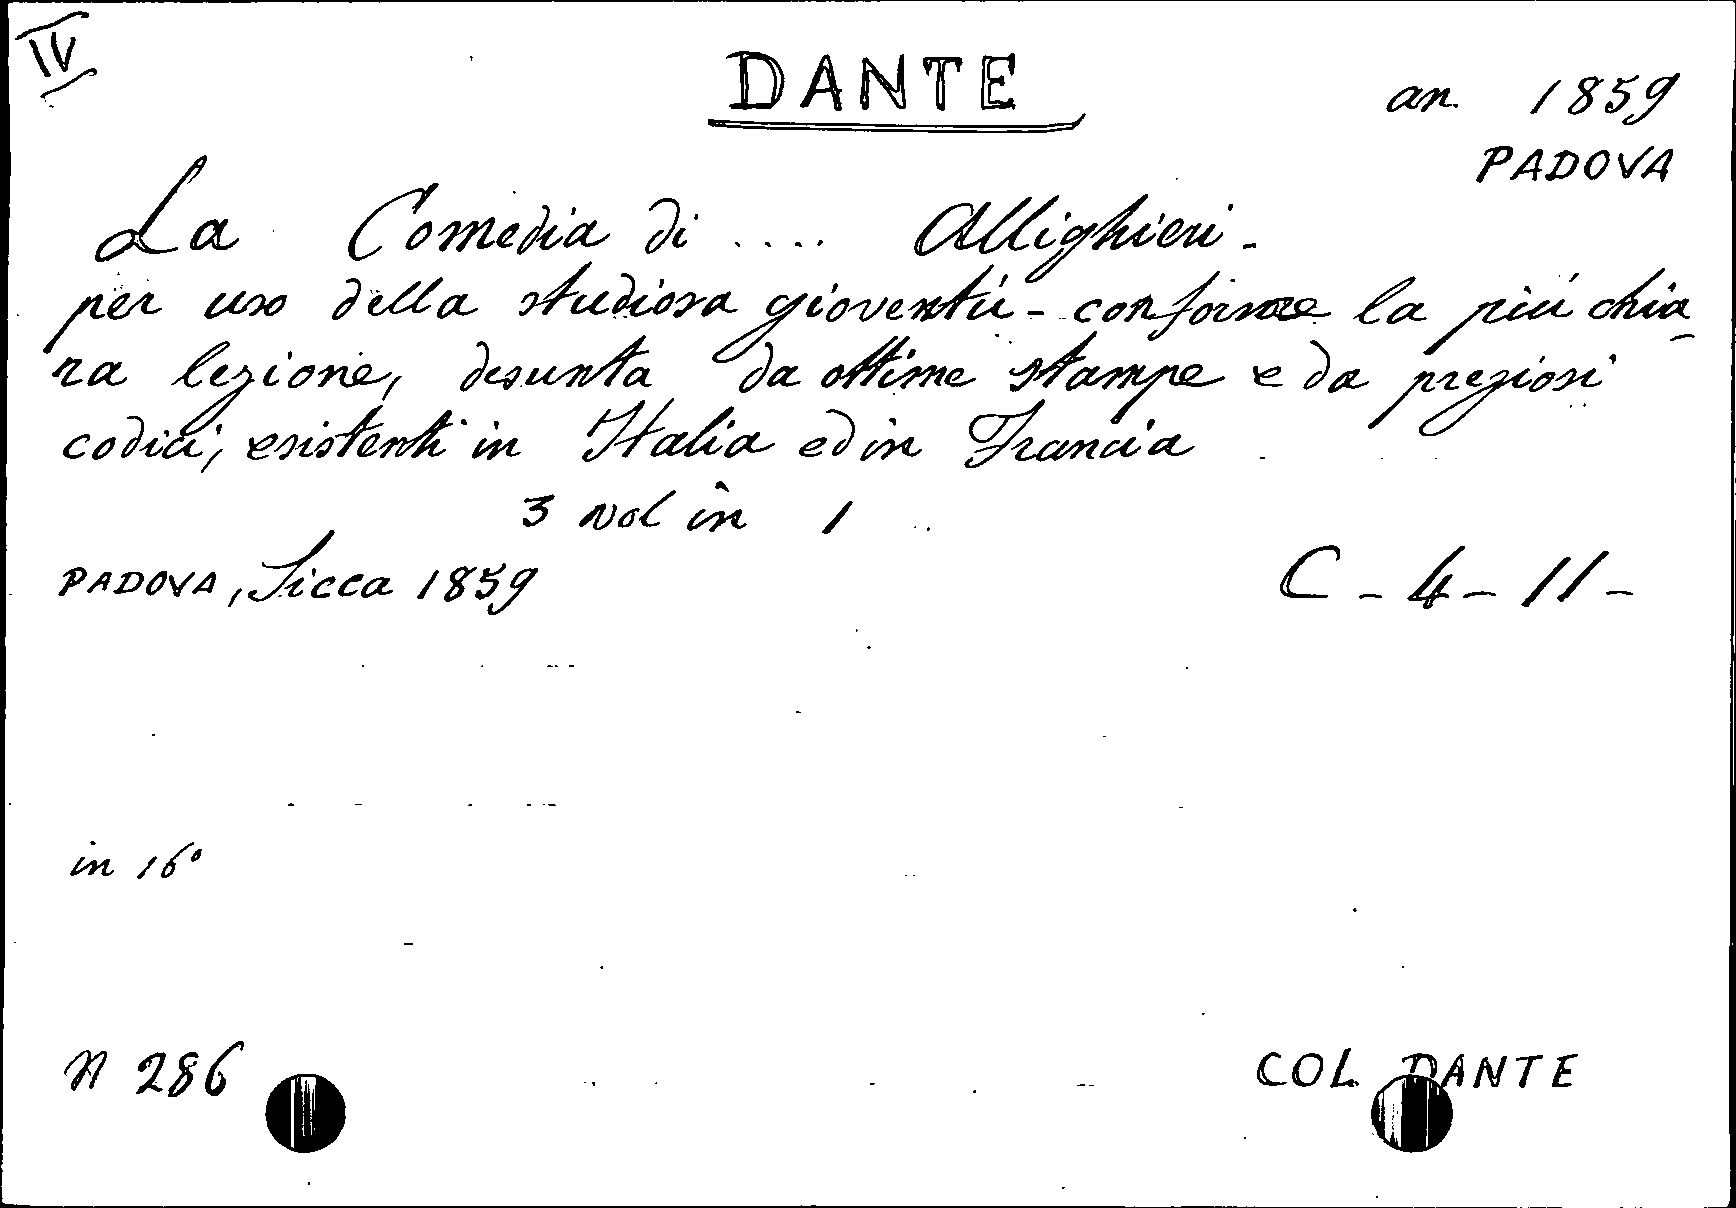 IV
DANTE
an. 1859
PADOVA
La Comedia di .... Allighieri -
per uso della studiosa gioventù - conforme la più chia-
ra lezione, desunta da ottime stampe e da preziosi
codici, esistenti in Italia ed in Francia
3 vol in 1
PADOVA, Sicca 1859
C - 4 - 11 -
in 16°
N 286
COL. DANTE